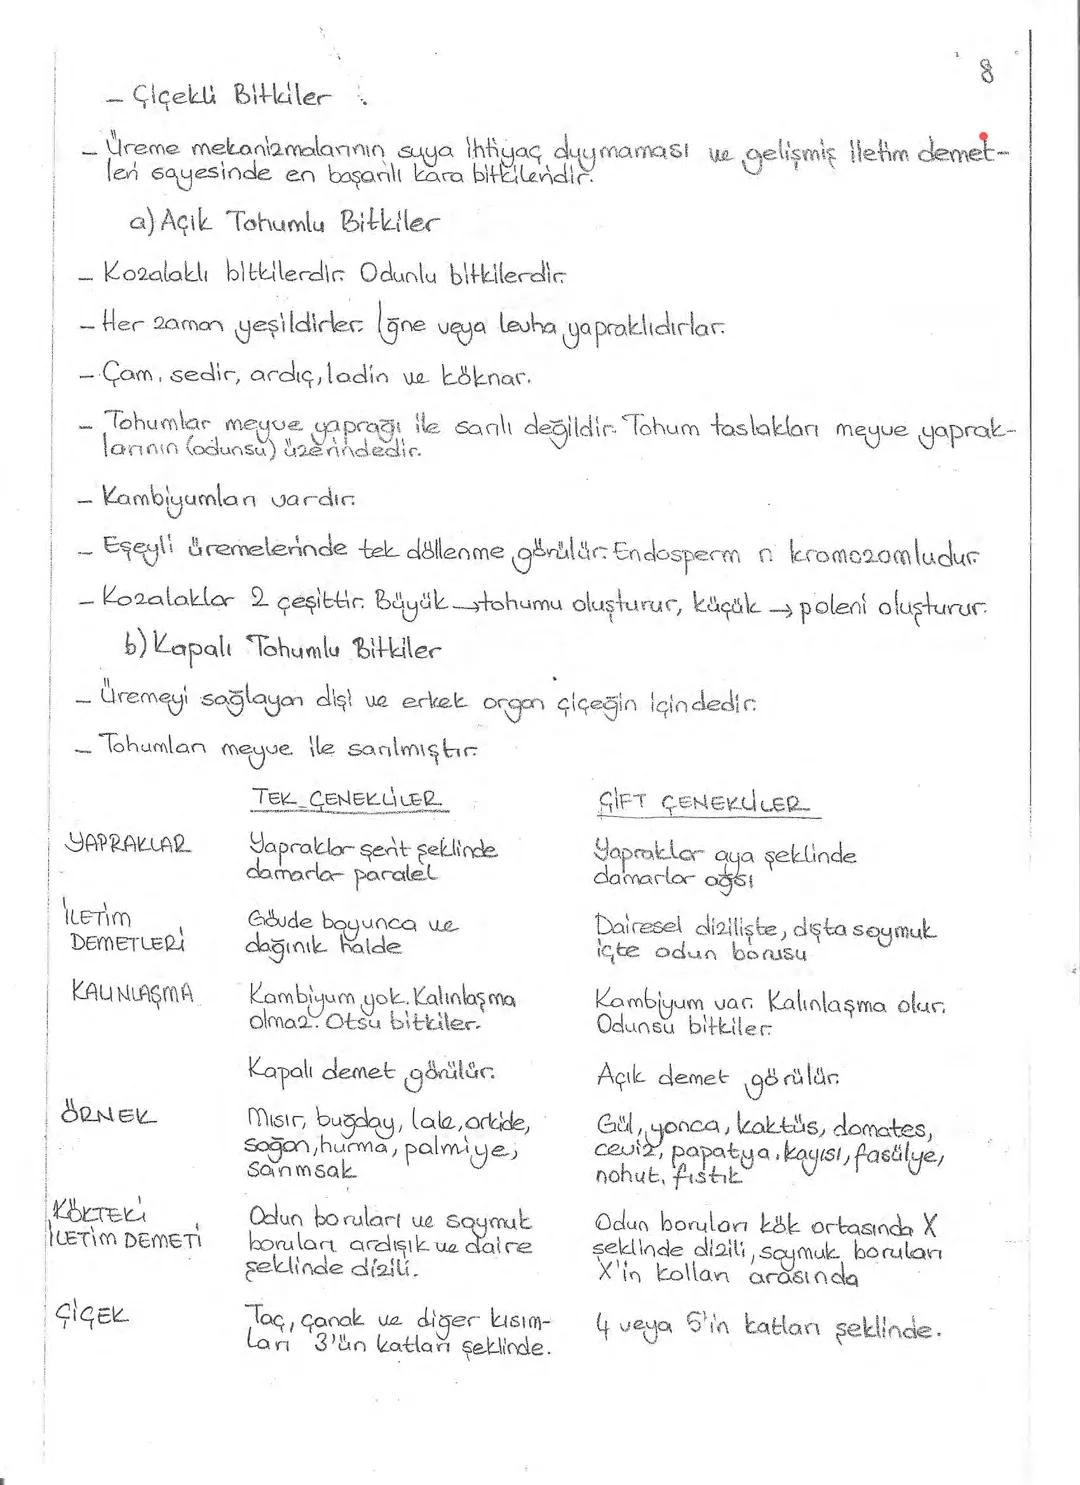 8
- Çiçekli Bitkiler
- Üreme mekanizmalarının suya ihtiyaç duymaması ve gelişmiş iletim demet-
leri sayesinde en başarılı kara bitkileridir.
a) Açık Tohumlu Bitkiler
- Kozalaklı bitkilerdir. Odunlu bitkilerdir.
- Her zaman yeşildirler. İğne veya levha yapraklıdırlar.
- Çam, sedir, ardıç, ladin ve köknar.
- Tohumlar meyve yaprağı ile sarılı değildir. Tohum taslakları meyve yaprak-
larının (odunsu) üzerindedir.
- Kambiyumları vardır.
- Eşeyli üremelerinde tek döllenme görülür. Endosperm n kromozomludur.
- Kozalaklar 2 çeşittir. Büyük → tohumu oluşturur, küçük → poleni oluşturur.
b) Kapalı Tohumlu Bitkiler
- Üremeyi sağlayan dişi ve erkek organ çiçeğin içindedir.
- Tohumları meyve ile sarılmıştır.
TEK ÇENEKLİLER ÇİFT ÇENEKLİLER
YAPRAKLAR Yapraklar şerit şeklinde Yapraklar aya şeklinde
damarlar paralel damarlar ağsı
İLETİM Gövde boyunca ve Dairesel dizilişte, dışta soymuk
DEMETLERİ dağınık halde içte odun borusu
KALINLAŞMA Kambiyum yok. Kalınlaşma Kambiyum var. Kalınlaşma olur.
olmaz. Otsu bitkiler. Odunsu bitkiler.
Kapalı demet görülür. Açık demet görülür.
ÖRNEK Mısır, buğday, lale, orkide, Gül, yonca, kaktüs, domates,
soğan, hurma, palmiye, ceviz, papatya, kayısı, fasülye,
sarımsak nohut, fıstık
KÖKTEKİ Odun boruları ve soymuk Odun boruları kök ortasında X
İLETİM DEMETİ boruları ardışık ve daire şeklinde dizili, soymuk boruları
şeklinde dizili. X'in kolları arasında
ÇİÇEK Taç, çanak ve diğer kısım- 4 veya 5'in katları şeklinde.
ları 3'ün katları şeklinde.